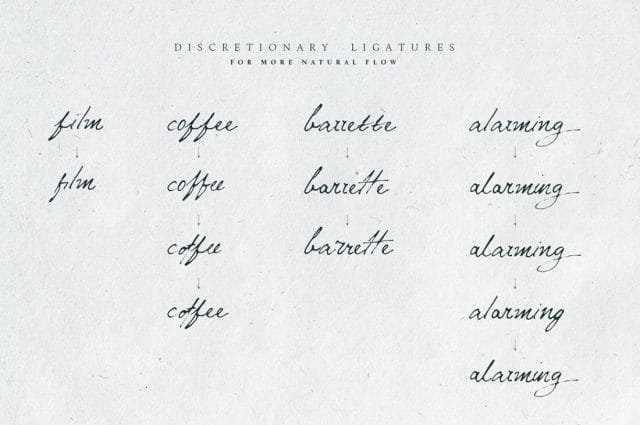 DISCRETIONARY LIGATURES
FOR MORE NATURAL FLOW
film coffee barrette alarming
film coffee barrette alarming
coffee barrette alarming
coffee alarming
alarming